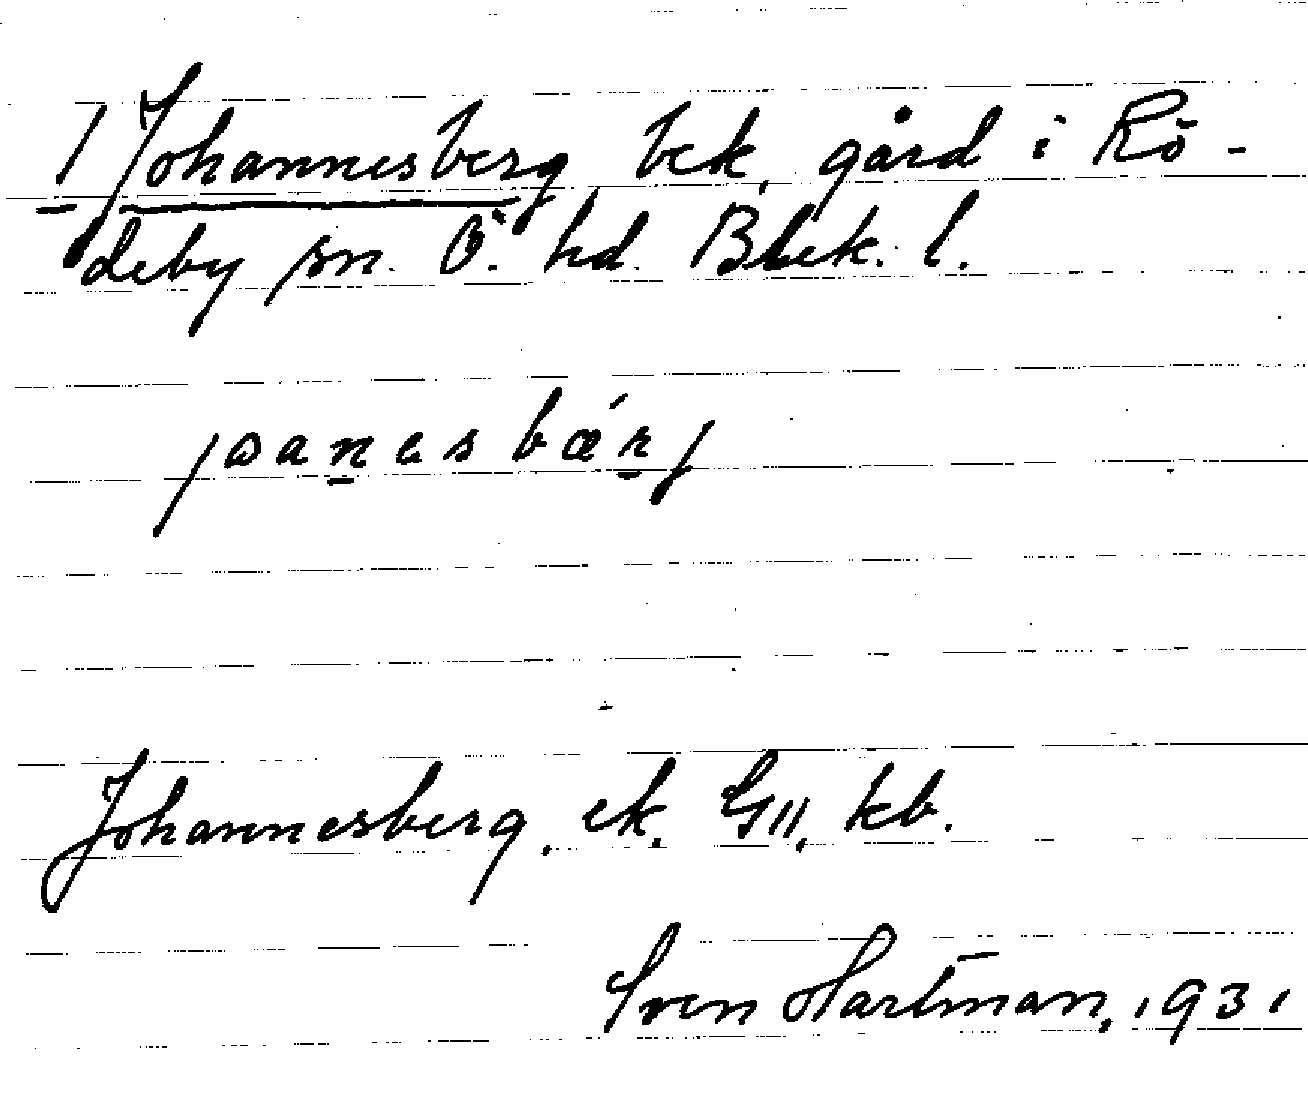 1 Johannesberg bek. gård i Rö-
deby sn. Ö. hd. Blek. l.
joanesbǽrj
Johannesberg. ek. GII, kb.
Sven Hartman, 1931